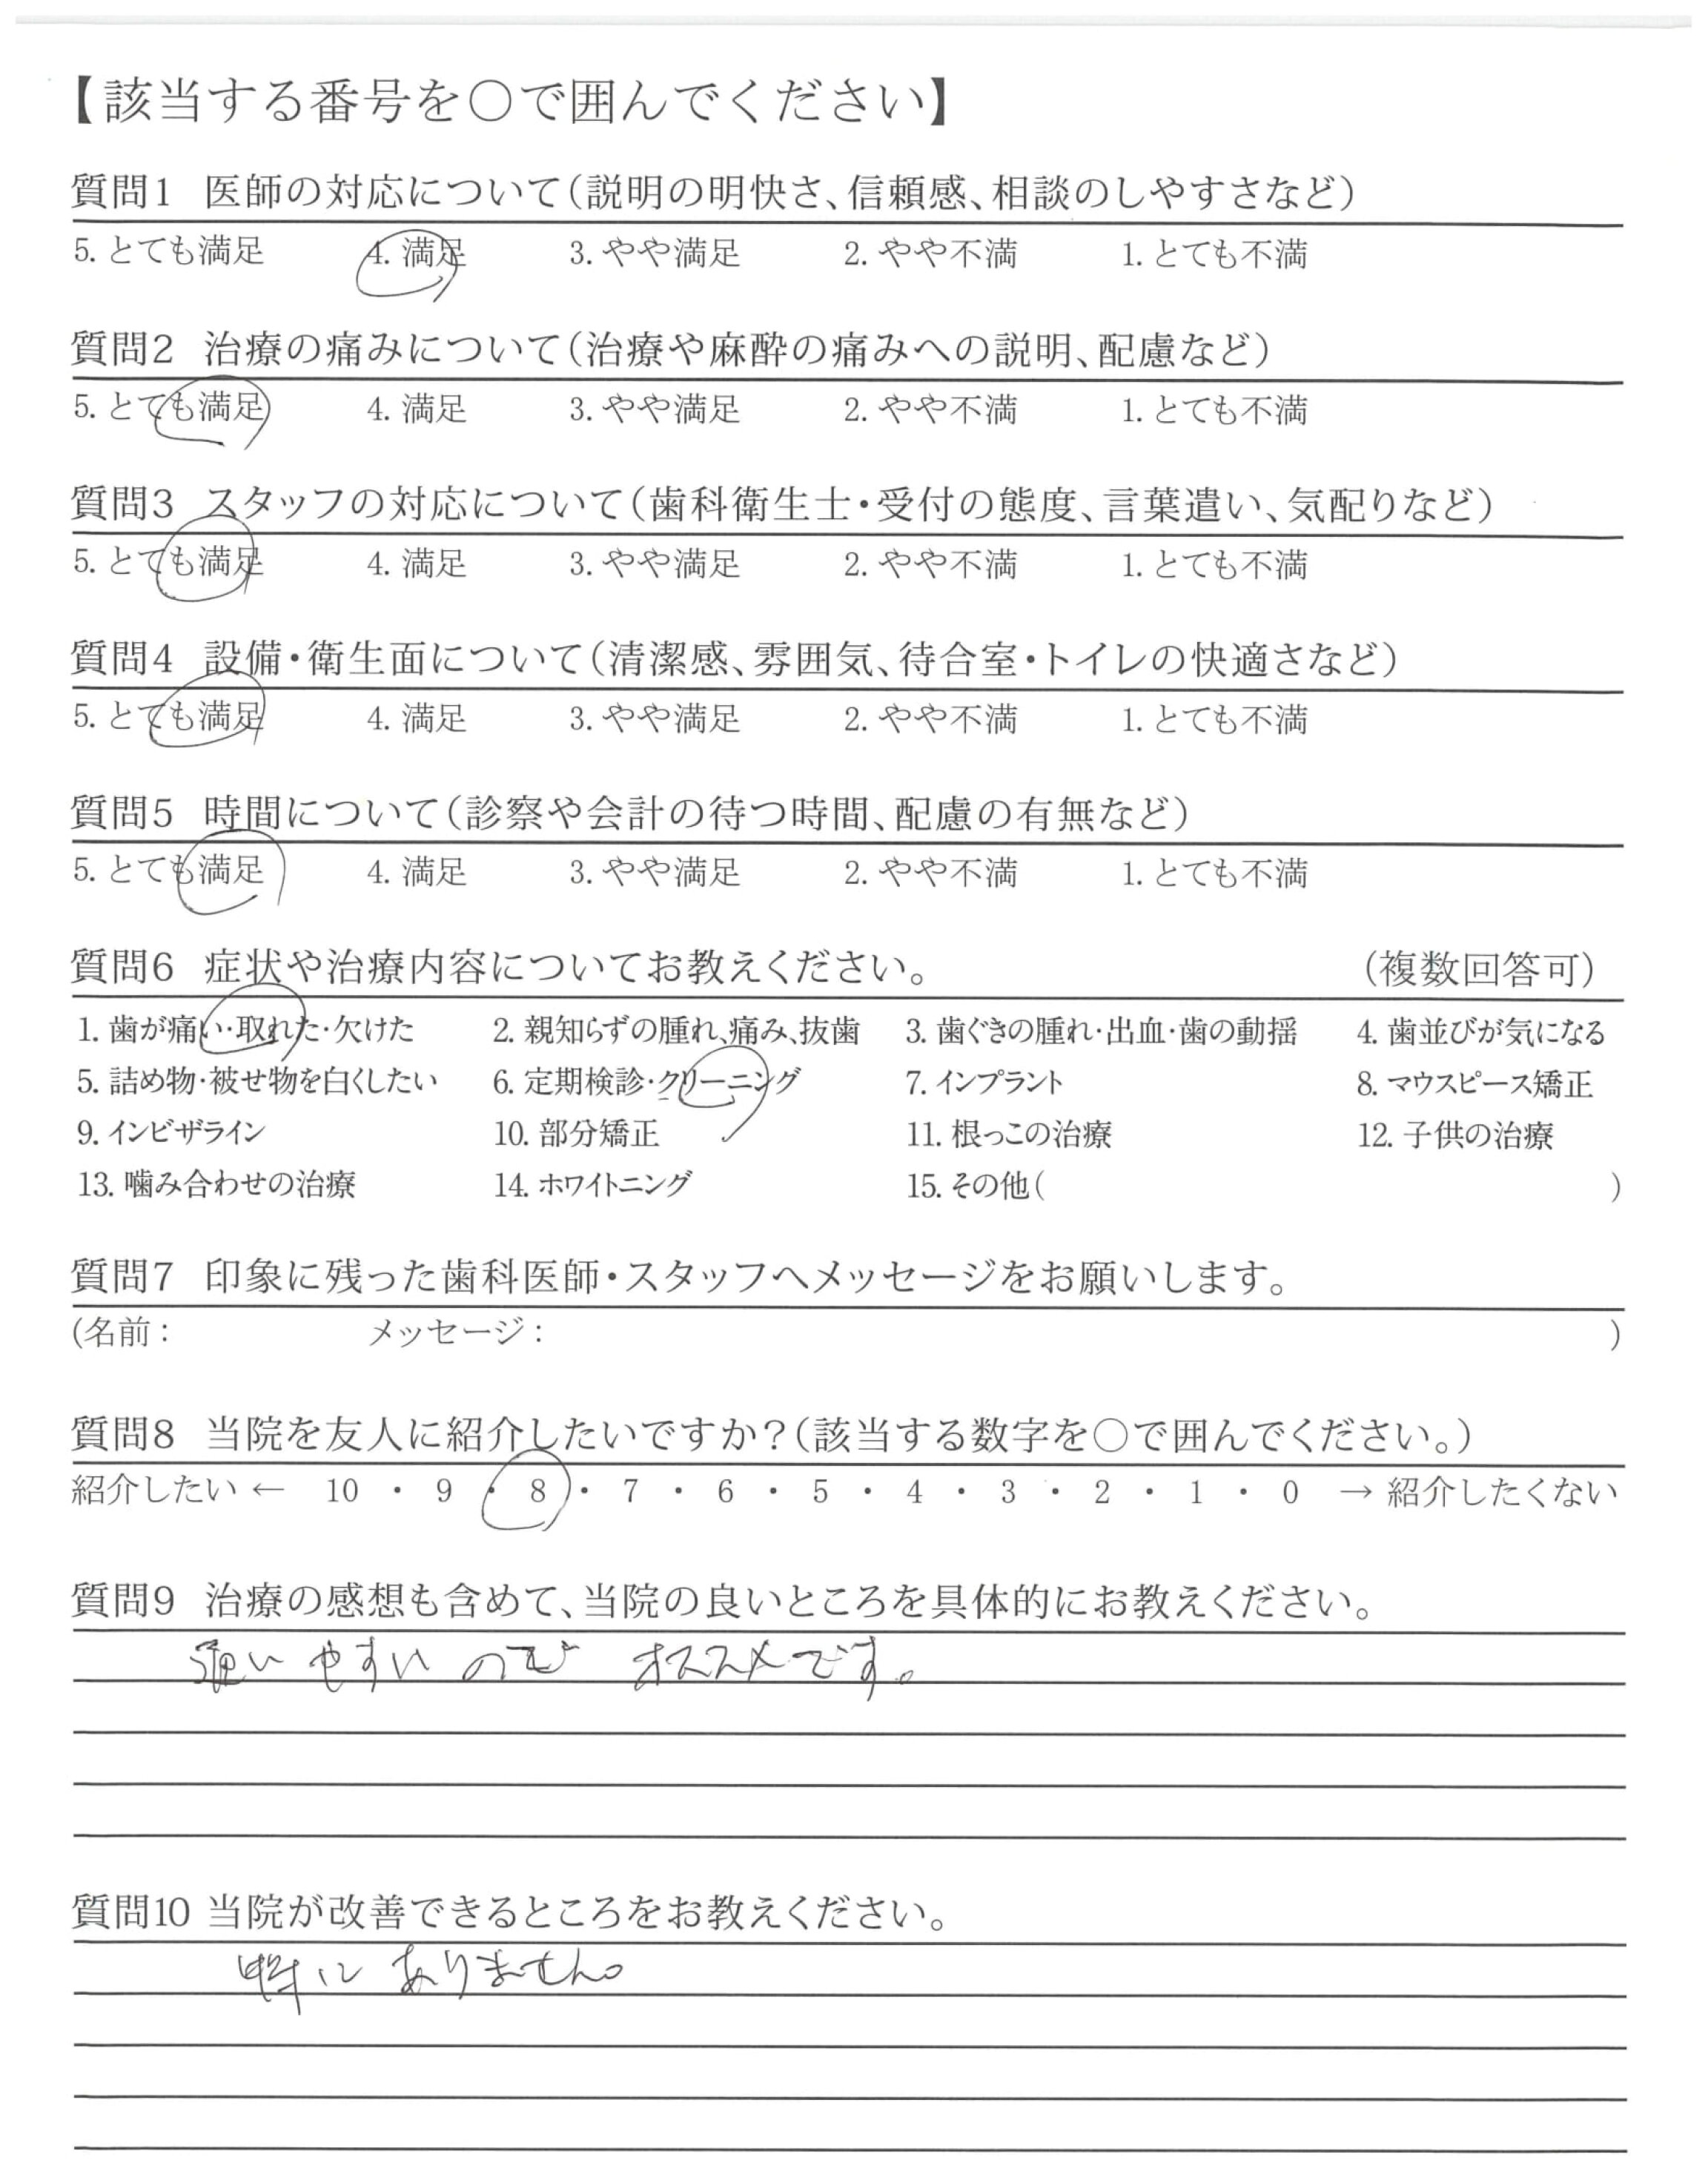 【該当する番号を○で囲んでください】
質問1 医師の対応について(説明の明快さ、信頼感、相談のしやすさなど)
5. とても満足 4. 満足 3. やや満足 2. やや不満 1. とても不満
質問2 治療の痛みについて(治療や麻酔の痛みへの説明、配慮など)
5. とても満足 4. 満足 3. やや満足 2. やや不満 1. とても不満
質問3 スタッフの対応について(歯科衛生士・受付の態度、言葉遣い、気配りなど)
5. とても満足 4. 満足 3. やや満足 2. やや不満 1. とても不満
質問4 設備・衛生面について(清潔感、雰囲気、待合室・トイレの快適さなど)
5. とても満足 4. 満足 3. やや満足 2. やや不満 1. とても不満
質問5 時間について(診察や会計の待つ時間、配慮の有無など)
5. とても満足 4. 満足 3. やや満足 2. やや不満 1. とても不満
質問6 症状や治療内容についてお教えください。 (複数回答可)
1. 歯が痛い・取れた・欠けた 2. 親知らずの腫れ、痛み、抜歯 3. 歯ぐきの腫れ・出血・歯の動揺 4. 歯並びが気になる
5. 詰め物・被せ物を白くしたい 6. 定期検診・クリーニング 7. インプラント 8. マウスピース矯正
9. インビザライン 10. 部分矯正 11. 根っこの治療 12. 子供の治療
13. 噛み合わせの治療 14. ホワイトニング 15. その他( )
質問7 印象に残った歯科医師・スタッフへメッセージをお願いします。
(名前: メッセージ: )
質問8 当院を友人に紹介したいですか?(該当する数字を○で囲んでください。)
紹介したい ← 10 ・ 9 ・ 8 ・ 7 ・ 6 ・ 5 ・ 4 ・ 3 ・ 2 ・ 1 ・ 0 → 紹介したくない
質問9 治療の感想も含めて、当院の良いところを具体的にお教えください。
通いやすいので オススメです。
質問10 当院が改善できるところをお教えください。
特に ありません。